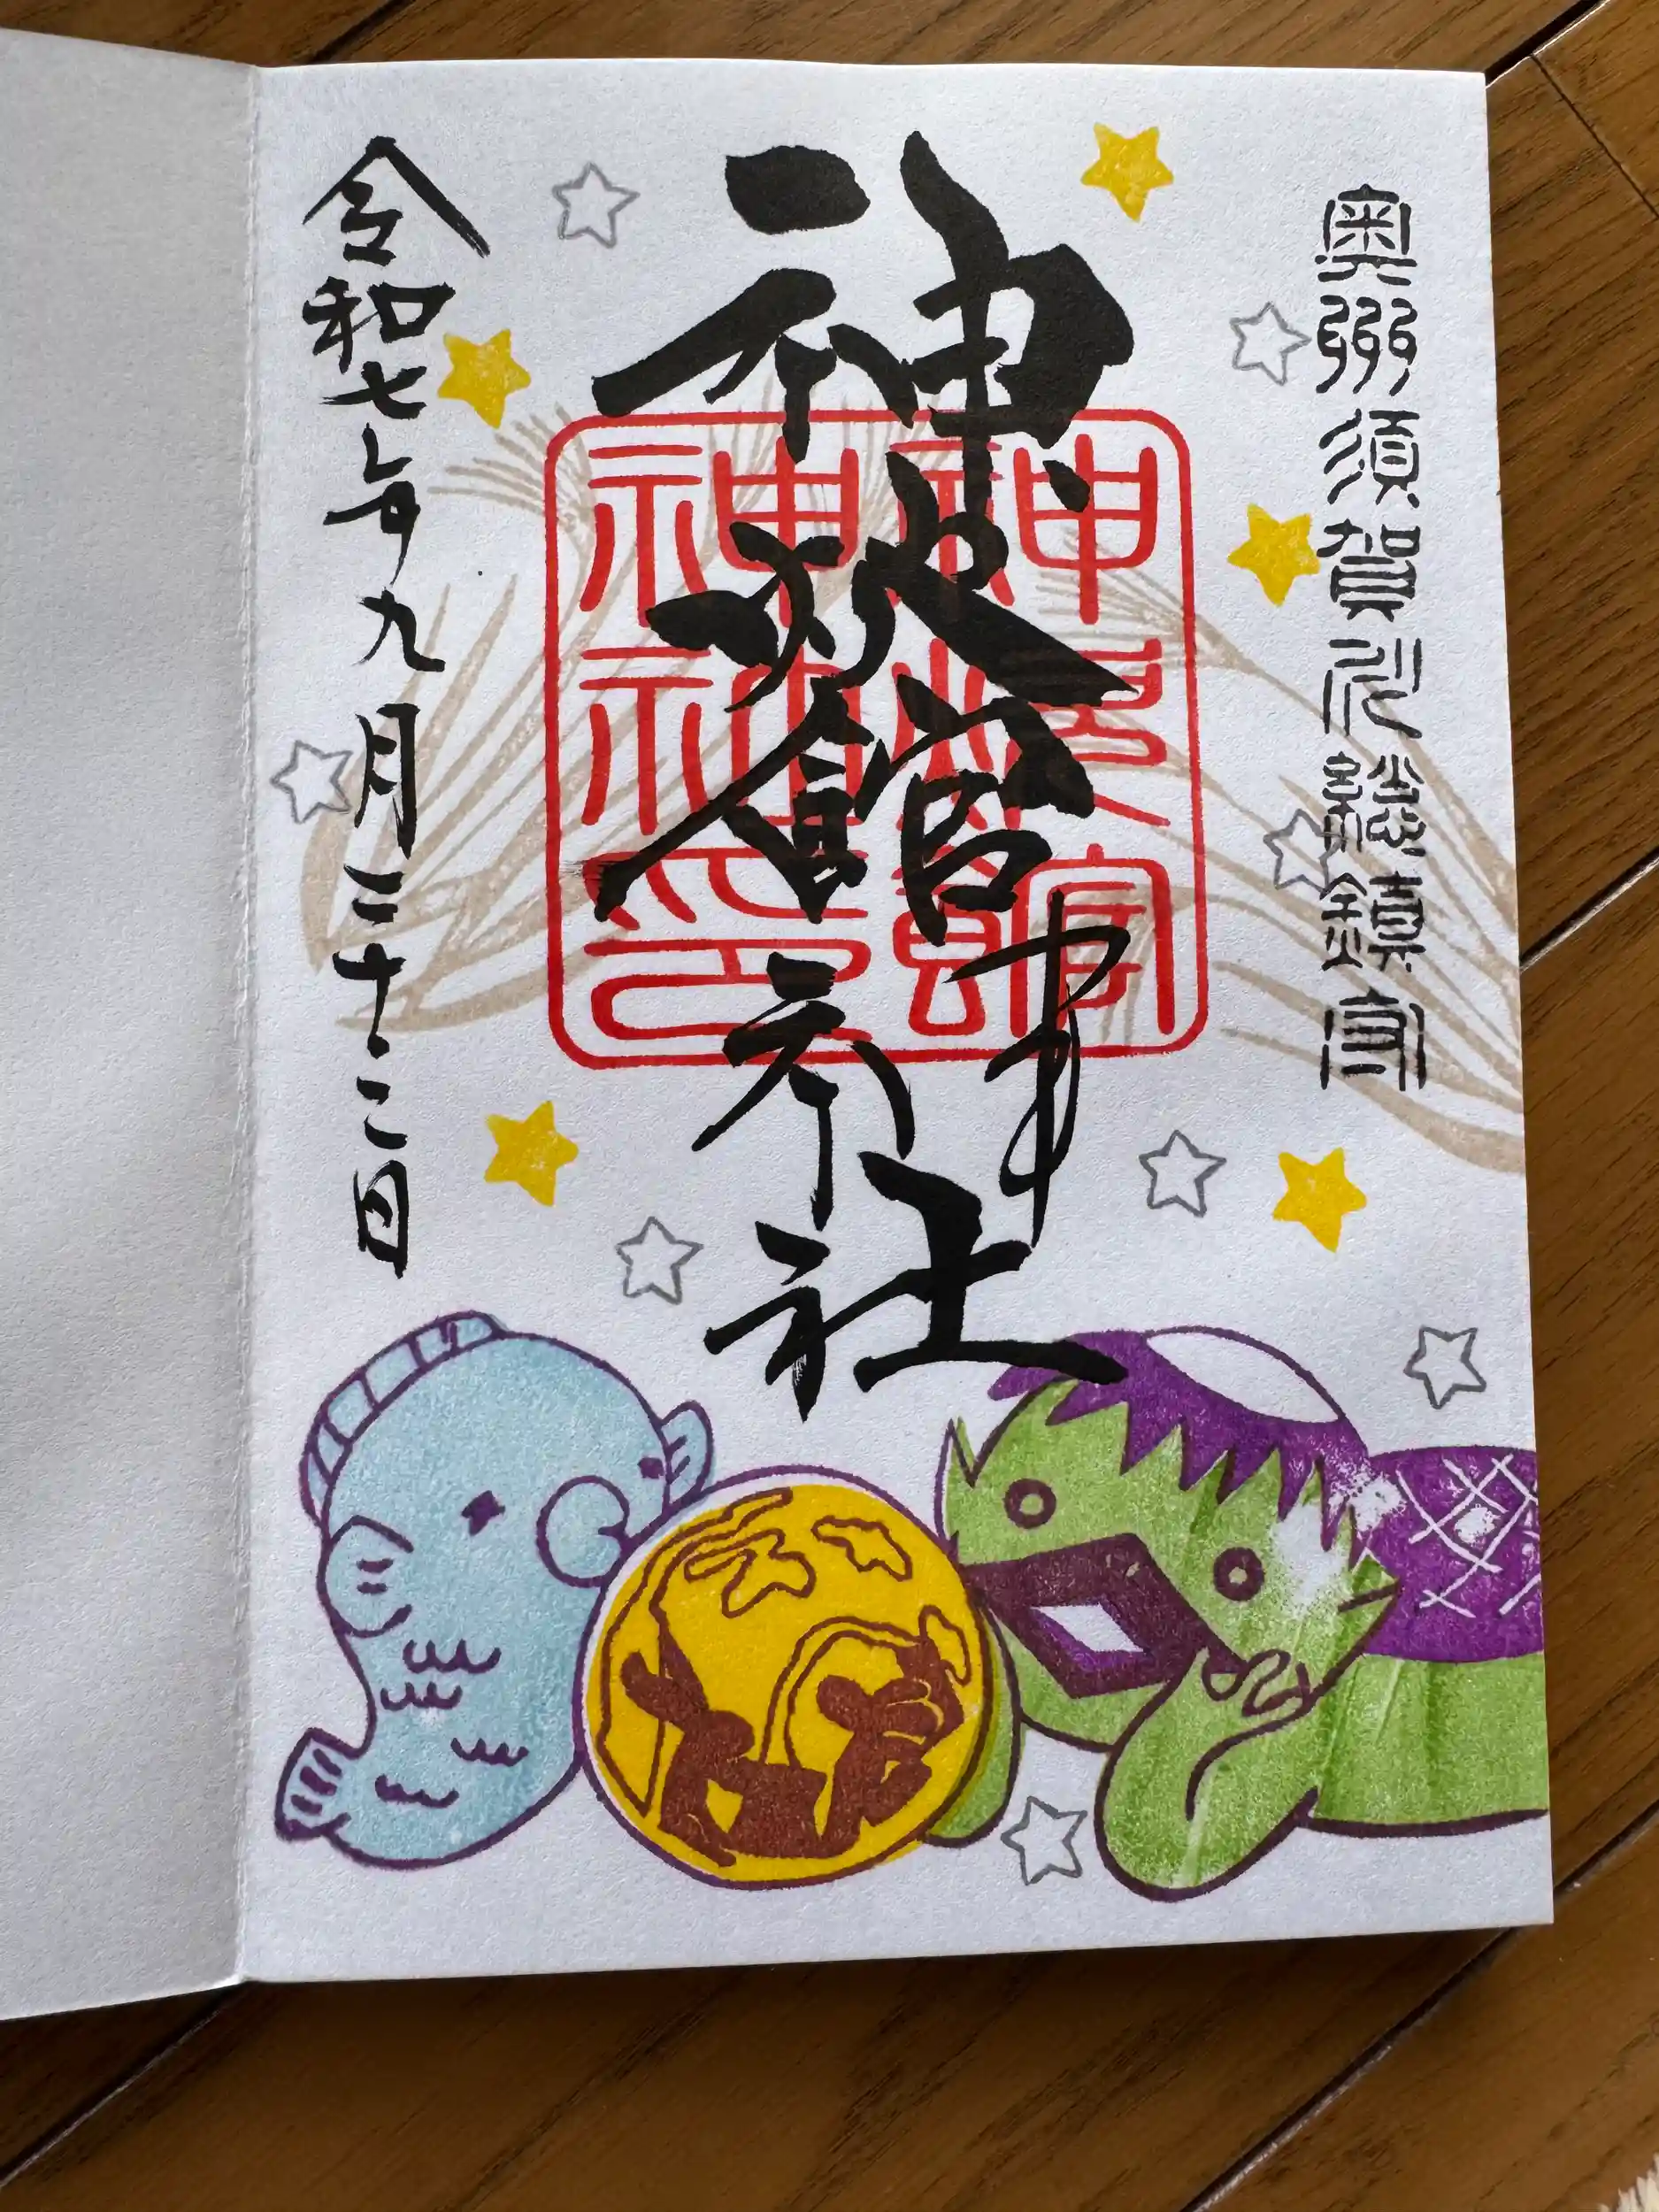 奧州須賀川總鎭守
神炊館神社
神炊館
神社印
令和七年九月二十二日